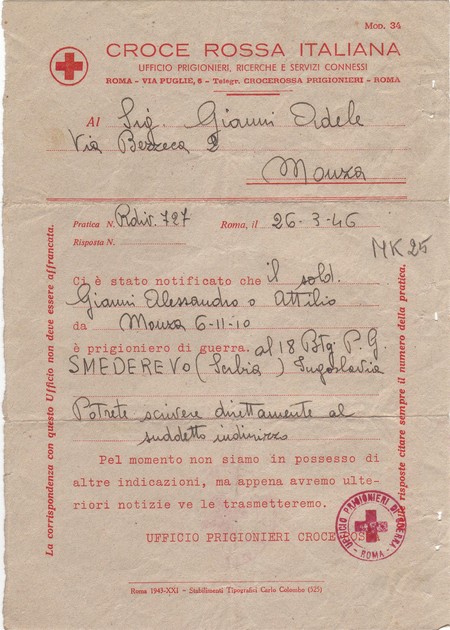 Mod. 34
CROCE ROSSA ITALIANA
UFFICIO PRIGIONIERI, RICERCHE E SERVIZI CONNESSI
ROMA - VIA PUGLIE, 6 - Telegr. CROCEROSSA PRIGIONIERI - ROMA
Al Sig. Gianni Adele
Via Bezzeca 2
Monza
Pratica N. Rdiv. 727 Roma, il 26-3-46
Risposta N.
MK 25
Ci è stato notificato che il sold.
Gianni Alessandro o Attilio
da Monza 6-11-10
è prigioniero di guerra. al 18 Btg P.G.
SMEDEREVO (Serbia) Jugoslavia
Potrete scrivere direttamente al
suddetto indirizzo
Pel momento non siamo in possesso di
altre indicazioni, ma appena avremo ulte-
riori notizie ve le trasmetteremo.
UFFICIO PRIGIONIERI CROCE ROS
UFFICIO PRIGIONIERI DI GUERRA
- ROMA -
La corrispondenza con questo Ufficio non deve essere affrancata.
le risposte citare sempre il numero della pratica.
Roma 1943-XXI - Stabilimenti Tipografici Carlo Colombo (525)